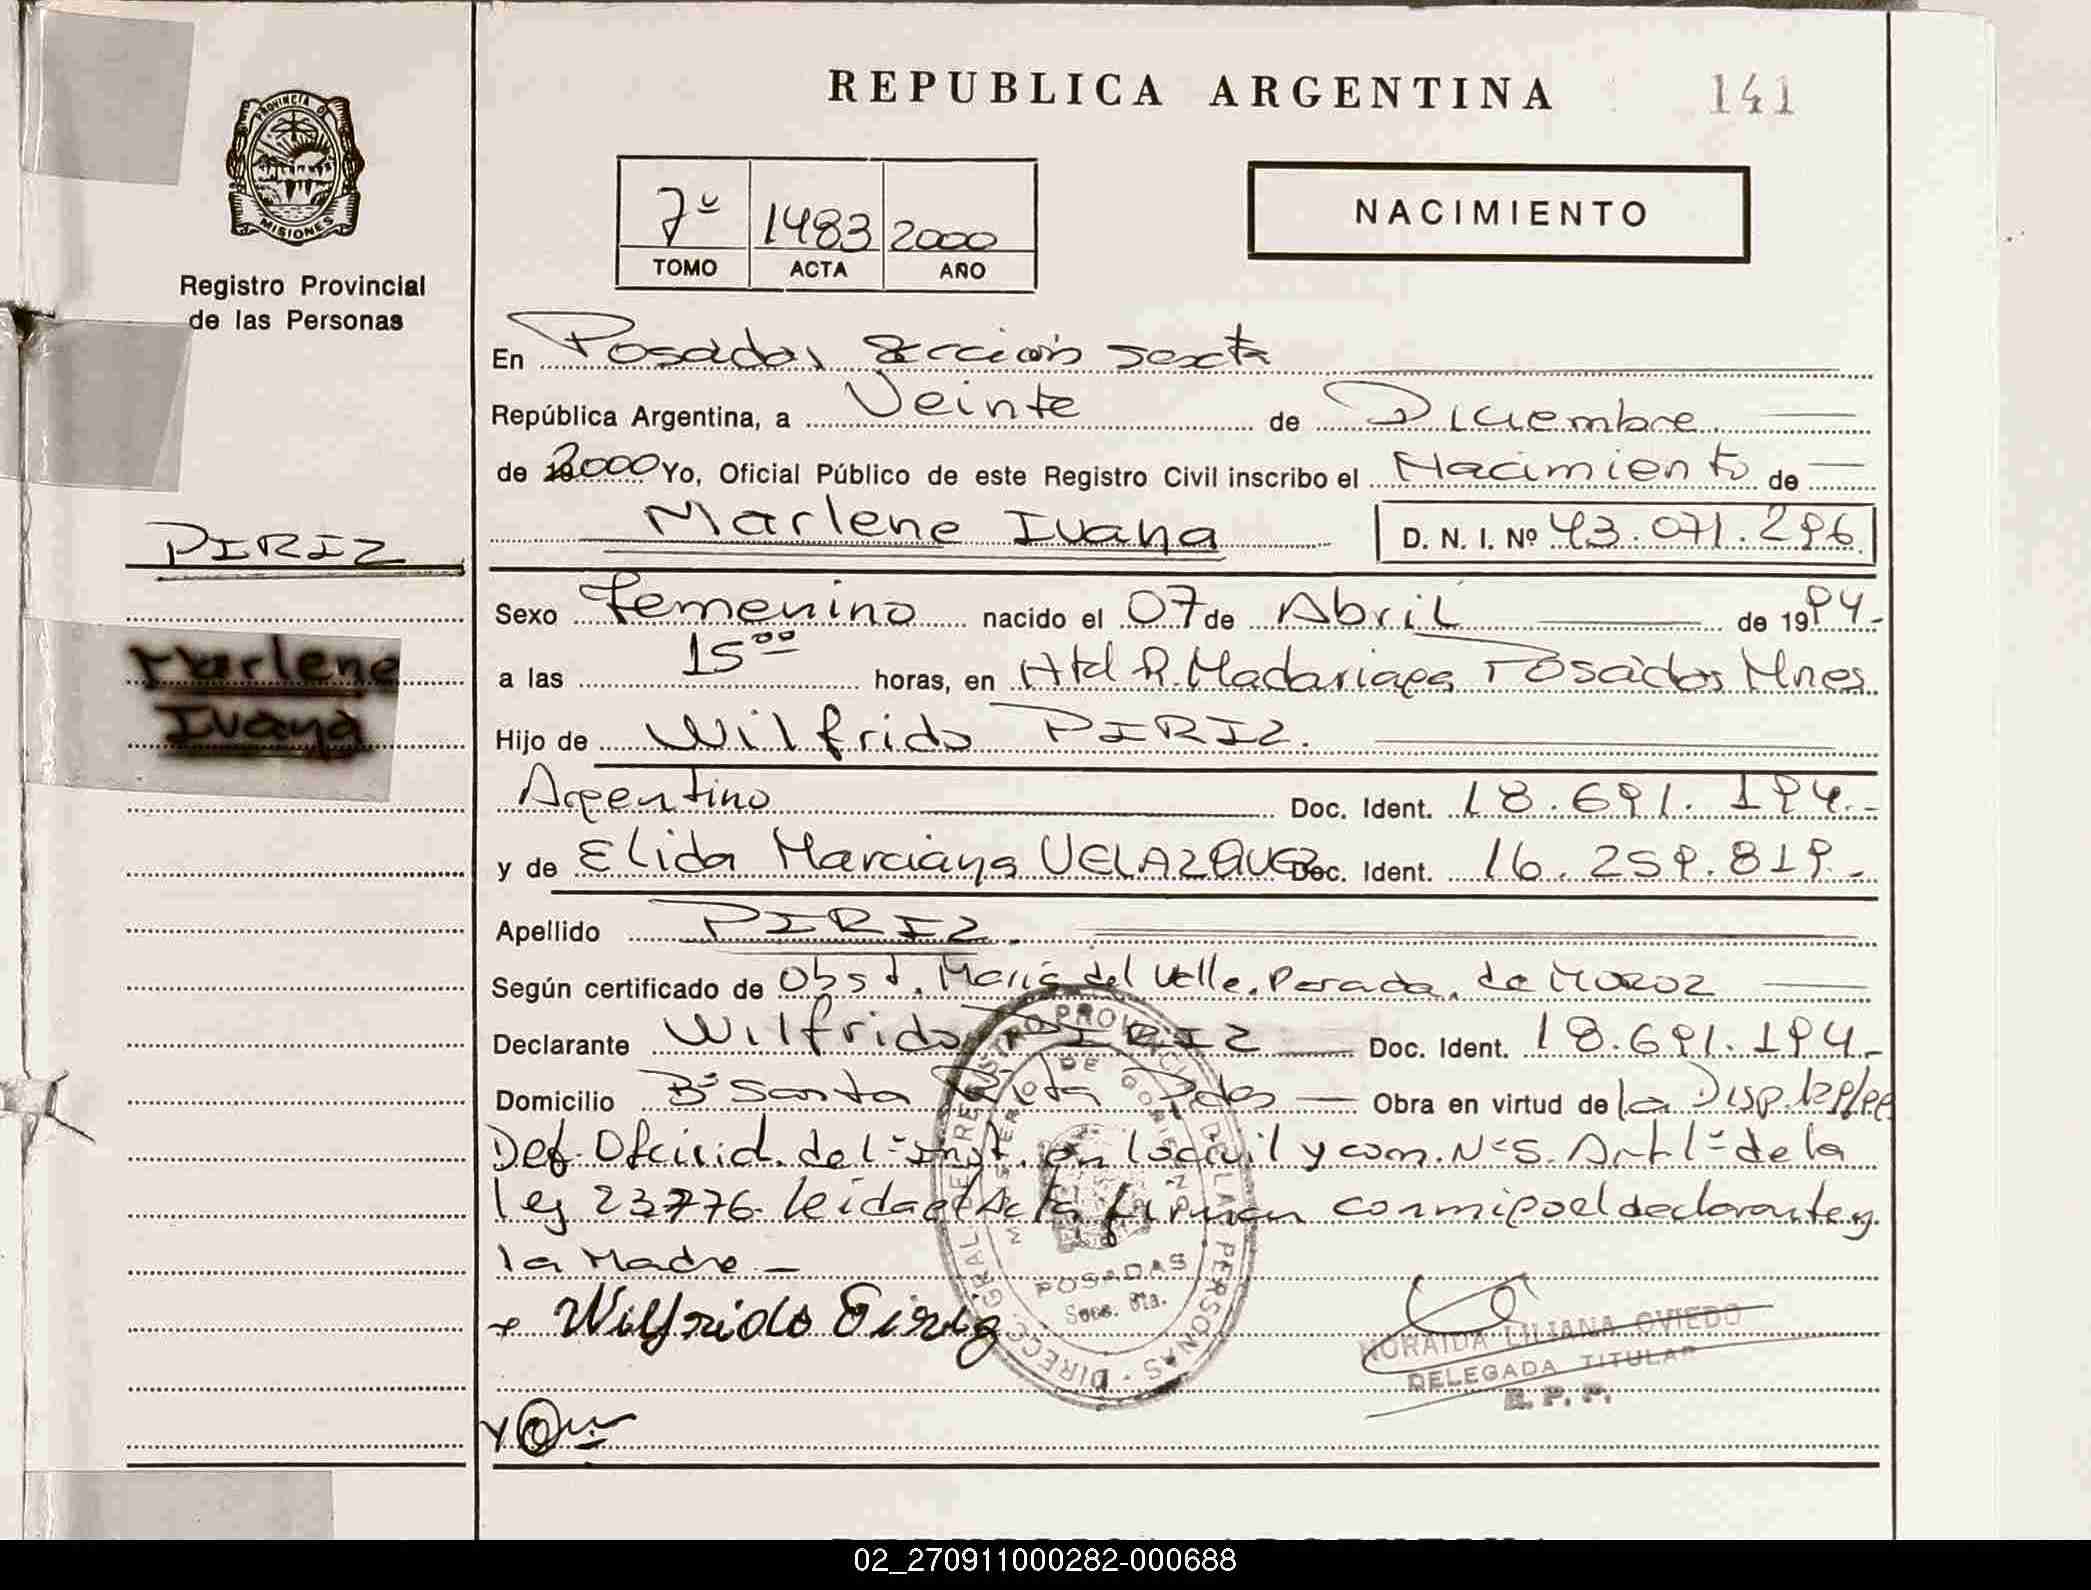 REPUBLICA ARGENTINA
141
PROVINCIA DE
MISIONES
Registro Provincial
de las Personas
7º 1483 2000
TOMO ACTA AÑO
NACIMIENTO
En Posadas sección sexta
República Argentina, a Veinte de Diciembre
de 2000 Yo, Oficial Público de este Registro Civil inscribo el Nacimiento de
PIRIZ
Marlene Ivana D. N. I. Nº 43.071.296
Sexo Femenino nacido el 07 de Abril de 1994.-
Marlene
Ivana
a las 15ºº horas, en Htal R. Madariaga Posadas Mnes
Hijo de Wilfrido PIRIZ.
Argentino Doc. Ident. 18.691.194.-
y de Elida Marciana VELAZQUEZ Doc. Ident. 16.259.819.-
Apellido PIRIZ.
Según certificado de Obst. María del Valle Parada de MOROZ
Declarante Wilfrido PIRIZ Doc. Ident. 18.691.194.-
Domicilio Bº Santa Rita Pdas Obra en virtud de la Disp.
Def. Oficial del 1º Inst. en lo civil y com. Nº 5. Art 1º de la
ley 23776. leida el Acta firman conmigo el declarante y
la Madre.-
Wilfrido Piriz
DIREC. GRAL. DE REGISTRO PROVINCIAL DE LAS PERSONAS
MINISTERIO DE GOBIERNO
POSADAS
Secc. 6ta.
NORAIDA LILIANA OVIEDO
DELEGADA TITULAR
R. P. P.
02_270911000282-000688